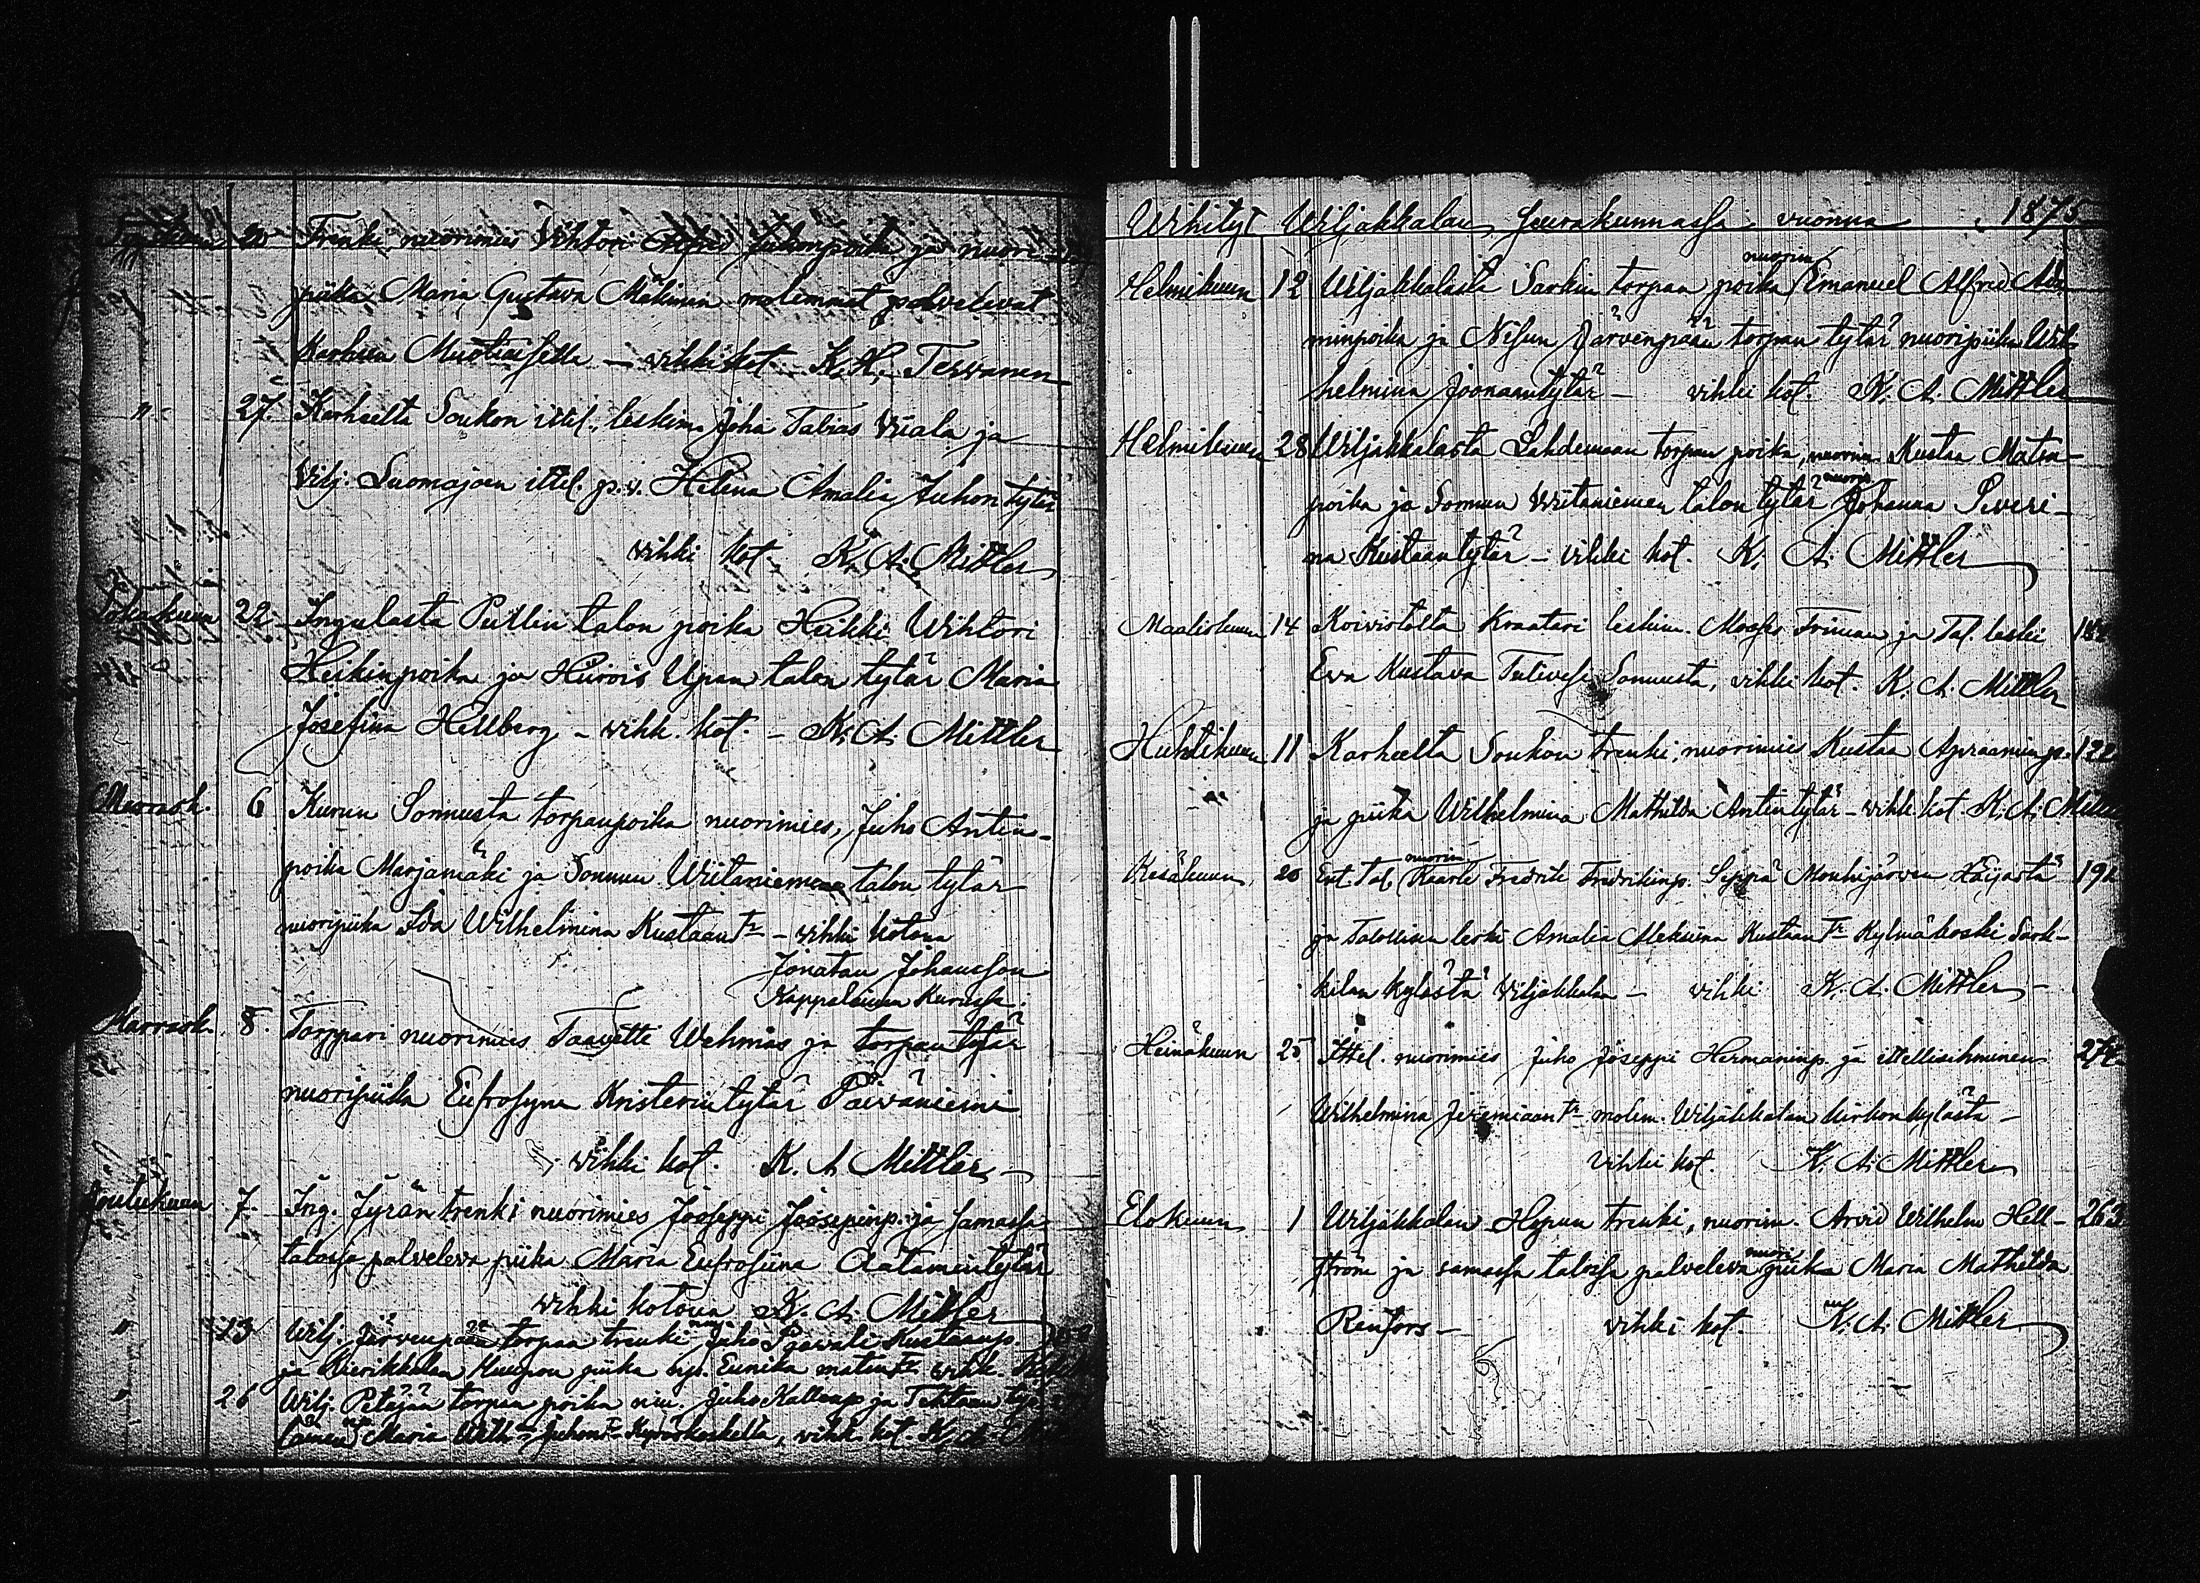 20 Trenki nuorimies Vihtori Juhonpoika ja nuori
piika Maria Gustava Mäkinen molemmat palvelevat
Karhun vihki kot. K. H. Terwanen
" 27. Karheelta Soukon ittel. leskim. Juha Tabias Viiala ja
Vilj. Suomajoen ittel. p. v. Helena Amalia Juhontytär
vihki kot. K. A. Mittler
Lokakuun 22 Ingulasta talon poika Heikki Wihtori
Heikinpoika ja Upan talon tytär Maria
Josefina Hellberg – vihk. kot. – K. A. Mittler
Marrask. 6 Kurun Sonnusta torpanpoika nuorimies, Juho Antin-
poika Marjamäki ja Sonnun Wiitaniemen talon tytär
nuoripiika Ida Wilhelmina Kustaan tr – vihki kotona
Jonatan Johansson
Kappalainen Kurussa.
Marrask. 8. Torppari nuorimies Taavetti Wehmas ja torpan tytär
nuoripiika Eufrosyne Kristeriintytär Päiväniemi
vihki kot. K. A. Mittler –
Joulukuun 7. Ing. Jyrän trenki nuorimies Jooseppi Joosepinp. ja samassa
talossa palveleva piika Maria Eufrosiina Aatamintytär
vihki kotona K. A. Mittler
" 13 Wilj. Järvenpään torpan trenki Juho Kustaanp.
ja piika Eunika matin tr vihk.
" 26 Wilj. Petäjän torpan poika Juho Kallenp ja
Maria Juhon tr vihk. kot. K. A.
Wihityt Wiljakkalan seurakunnassa vuonna 1875
Helmikuun 12 Wiljakkalasta Sarkin torpan poika nuorim. Emanuel Alfred Ada
minpoika ja Nisun Järvenpään torpan tytär nuoripiika Wil-
helmina Joonaantytär – vihki kot. K. A. Mittler
Helmikuun 28 Wiljakkalasta Lahdenmaan torpan poika, nuorim. Kustaa Matin-
poika ja Sonnun Wiitaniemen talon tytär nuorip. Johanna Severi-
na Kustaantytär – vihki kot. K. A. Mittler
Maaliskuun 14 Koivistolta Kraatari leskim. Moses Friman ja Tal. leski
Eva Kustava Sonnusta, vihki kot. K. A. Mittler
Huhtikuun 11 Karheelta Soukon trenki, nuorimies Kustaa Apraaminp. 122
ja piika Wilhelmina Mathilda Antintytär – vihk. kot. K. A. Mittler
Kesäkuun 20 Ent. Tal. nuorim. Kaarle Fredrik Fredrikinp. Seppä Mouhijärven Häijästä 191
ja Talollisen leski Amalia Aleksiina Kustaan tr Kylmäkoski Sark-
kilan kylästä Viljakkala – vihki K. A. Mittler –
Heinäkuun 25 Ittel. nuorimies Juho Jooseppi Hermaninp. ja ittellisihminen 274
Wilhelmina Jeremiaan tr molem. Wiljakkalan kirkonkylästä –
vihki kot. K. A. Mittler
Elokuun 1 Wiljakkalan Hypun trenki, nuorim. Arvid Wilhelm Hell- 263
ström ja samassa talossa palveleva nuori piika Maria Mathilda
Renfors – vihki kot. K. A. Mittler